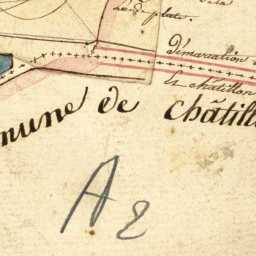 de la
démarcation
et châtillon
mune de châtill
A 2